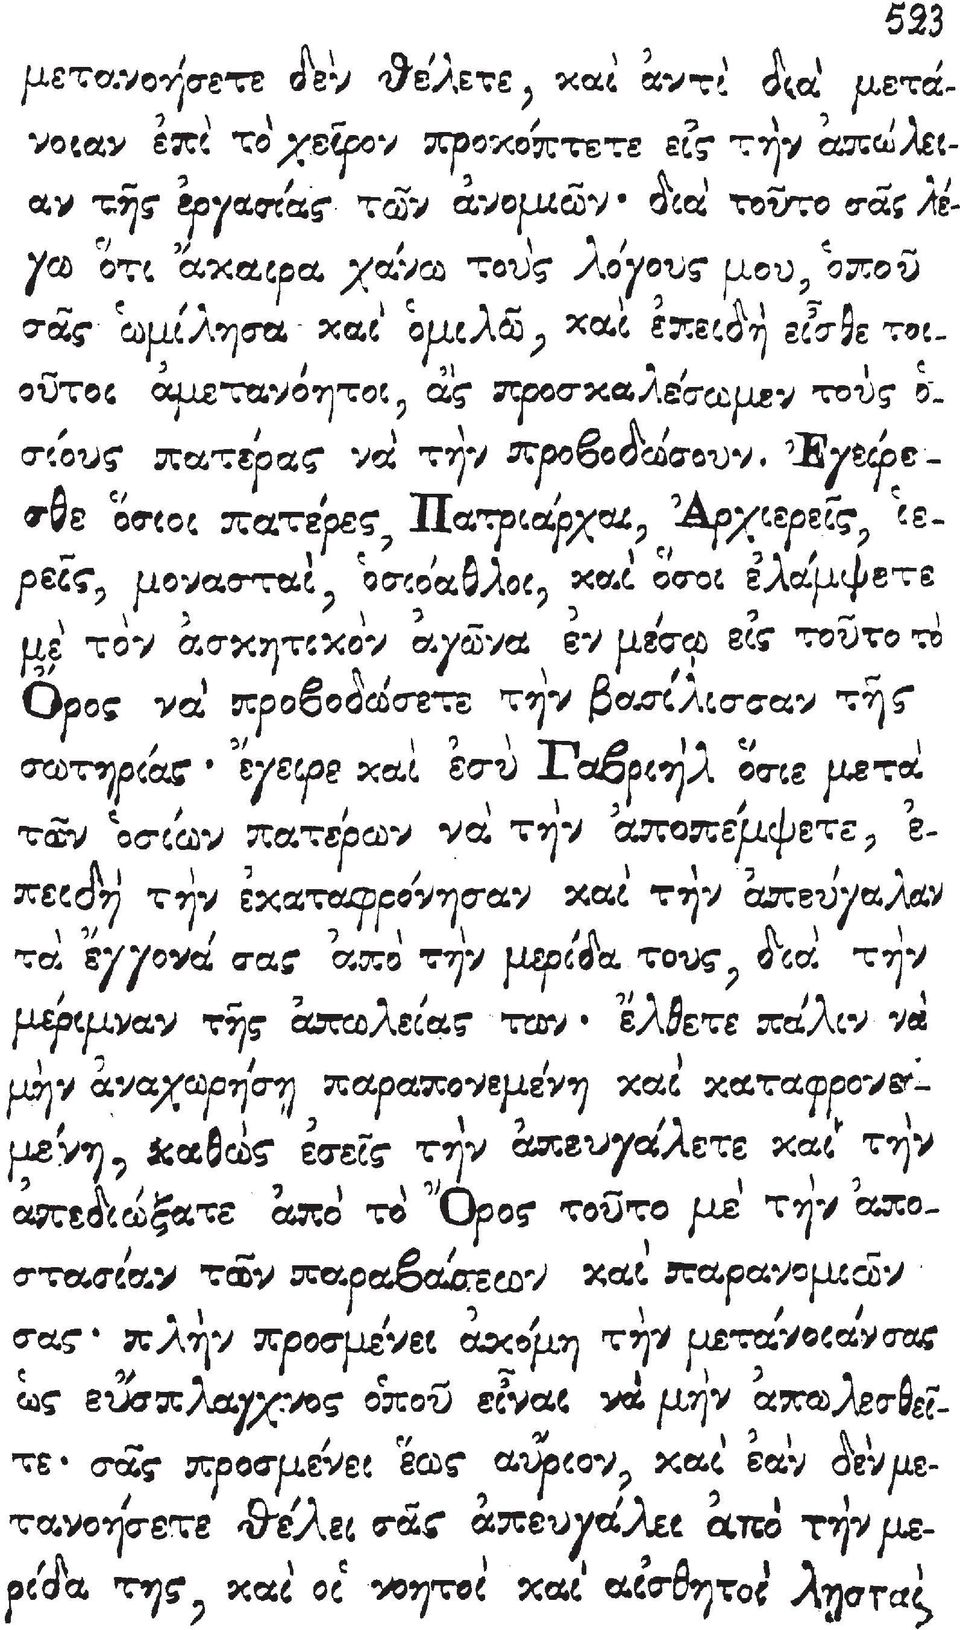 523
μετανοήσετε δὲν θέλετε, καὶ ἀντὶ διὰ μετά-
νοιαν ἐπὶ τὸ χεῖρον προκόπτετε εἰς τὴν ἀπώλει-
αν τῆς ἐργασίας τῶν ἀνομιῶν· διὰ τοῦτο σᾶς λέ-
γω ὅτι ἄκαιρα χάνω τοὺς λόγους μου, ὁποῦ
σᾶς ὡμίλησα καὶ ὁμιλῶ, καὶ ἐπειδὴ εἶσθε τοι-
οῦτοι ἀμετανόητοι, ἂς προσκαλέσωμεν τοὺς ὁ-
σίους πατέρας νὰ τὴν προβοδώσουν. Ἐγείρε-
σθε ὅσιοι πατέρες, Πατριάρχαι, Ἀρχιερεῖς, ἱε-
ρεῖς, μονασταὶ, ὁσιόαθλοι, καὶ ὅσοι ἐλάμψετε
μὲ τὸν ἀσκητικὸν ἀγῶνα ἐν μέσῳ εἰς τοῦτο τὸ
Ὄρος νὰ προβοδώσετε τὴν βασίλισσαν τῆς
σωτηρίας· ἔγειρε καὶ ἐσὺ Γαβριὴλ ὅσιε μετὰ
τῶν ὁσίων πατέρων νὰ τὴν ἀποπέμψετε, ἐ-
πειδὴ τὴν ἐκαταφρόνησαν καὶ τὴν ἀπευγαλαν
τὰ ἔγγονά σας ἀπὸ τὴν μερίδα τους, διὰ τὴν
μέριμναν τῆς ἀπωλείας των· ἔλθετε πάλιν νὰ
μὴν ἀναχωρήσῃ παραπονεμένη καὶ καταφρονε-
μένη, καθὼς ἐσεῖς τὴν ἀπευγάλετε καὶ τὴν
ἀπεδιώξατε ἀπὸ τὸ Ὄρος τοῦτο μὲ τὴν ἀπο-
στασίαν τῶν παραβάσεων καὶ παρανομιῶν
σας· πλὴν προσμένει ἀκόμη τὴν μετάνοιάν σας
ὡς εὔσπλαγχνος ὁποῦ εἶναι νὰ μὴν ἀπωλεσθεῖ-
τε· σᾶς προσμένει ἕως αὔριον, καὶ ἐὰν δὲν με-
τανοήσετε θέλει σᾶς ἀπευγάλει ἀπὸ τὴν με-
ρίδα της, καὶ οἱ νοητοὶ καὶ αἰσθητοὶ λῃσταὶ,